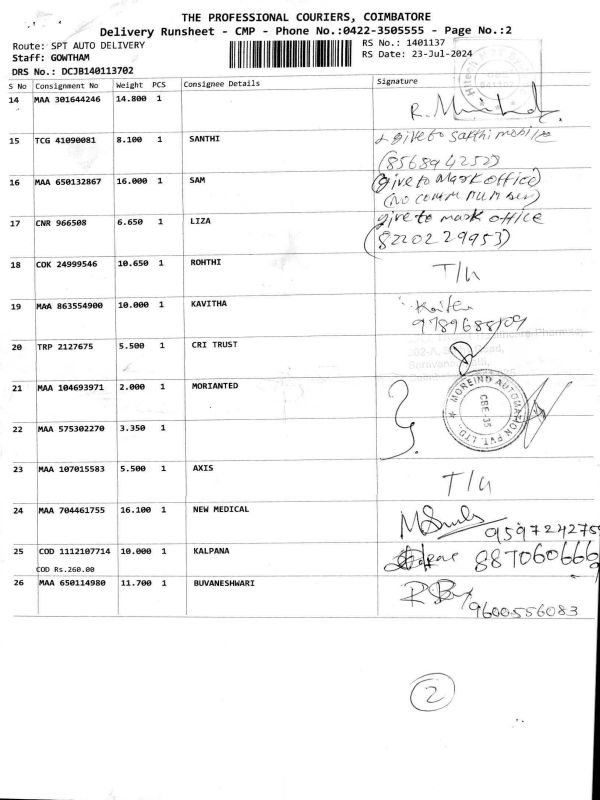 THE PROFESSIONAL COURIERS, COIMBATORE
Delivery Runsheet - CMP - Phone No.:0422-3505555 - Page No.:2
Route: SPT AUTO DELIVERY
RS No.: 1401137
Staff: GOWTHAM
RS Date: 23-Jul-2024
DRS No.: DCJB140113702
S No Consignment No Weight PCS Consignee Details Signature
14 MAA 301644246 14.800 1
15 TCG 41090081 8.100 1 SANTHI give to sakthi mobile
(8568942522)
16 MAA 650132867 16.000 1 SAM (give to Mark office)
(no comm number)
17 CNR 966508 6.650 1 LIZA give to mark office
(8220229953)
18 COK 24999546 10.650 1 ROHTHI T/u
19 MAA 863554900 10.000 1 KAVITHA
9789688109
20 TRP 2127675 5.500 1 CRI TRUST
21 MAA 104693971 2.000 1 MORIANTED
MOREIND AUTOMATION PVT. LTD.
CBE-35
22 MAA 575302270 3.350 1
23 MAA 107015583 5.500 1 AXIS T/u
24 MAA 704461755 16.100 1 NEW MEDICAL
959724275
25 COD 1112107714 10.000 1 KALPANA 887060666
COD Rs.260.00
26 MAA 650114980 11.700 1 BUVANESHWARI
9600556083
2